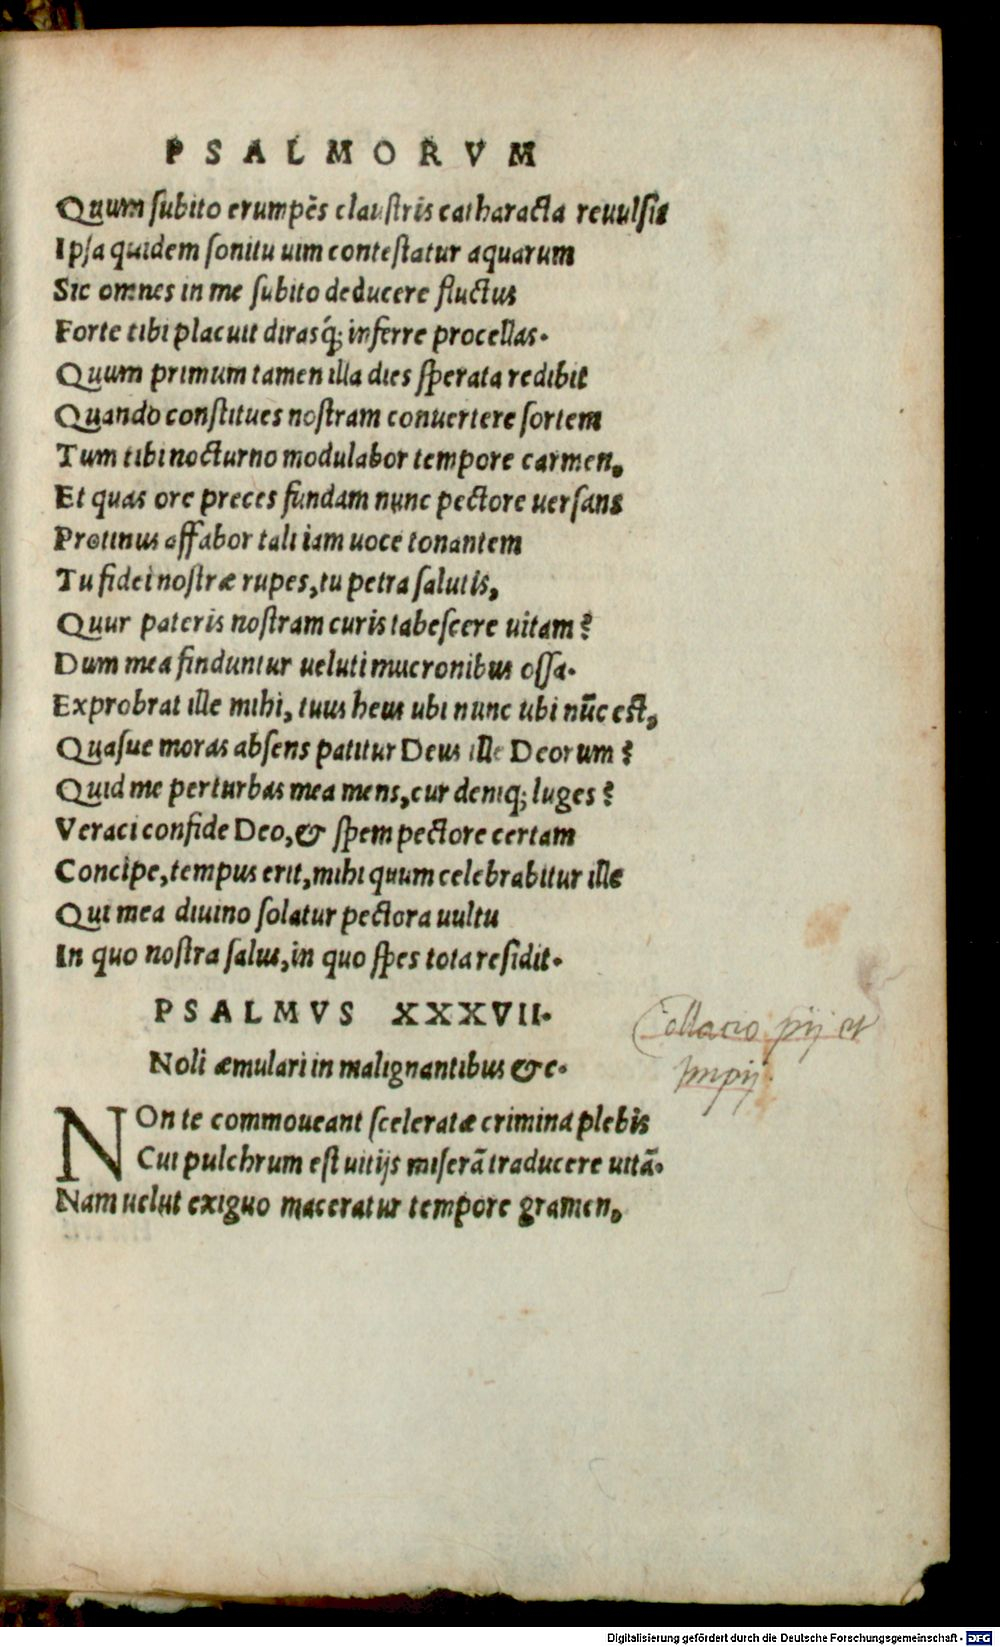 PSALMORVM
Quum subito erumpẽs claustris catharacta reuulsis
Ipsa quidem sonitu uim contestatur aquarum
Sic omnes in me subito deducere fluctus
Forte tibi placuit dirasq́; inferre procellas.
Quum primum tamen illa dies sperata redibit
Quando constitues nostram conuertere sortem
Tum tibi nocturno modulabor tempore carmen,
Et quas ore preces fundam nunc pectore uersans
Protinus affabor tali iam uoce tonantem
Tu fidei nostræ rupes, tu petra salutis,
Quur pateris nostram curis tabescere uitam?
Dum mea finduntur ueluti mucronibus ossa.
Exprobrat ille mihi, tuus heus ubi nunc ubi nũc est,
Quasue moras absens patitur Deus ille Deorum?
Quid me perturbas mea mens, cur deniq; luges?
Veraci confide Deo, & spem pectore certam
Concipe, tempus erit, mihi quum celebrabitur ille
Qui mea diuino solatur pectora uultu
In quo nostra salus, in quo spes tota residit.
PSALMVS XXXVII.
Collacio pij et
Impij.
Noli æmulari in malignantibus &c.
NOn te commoueant sceleratæ crimina plebis
Cui pulchrum est uitijs miserã traducere uitã.
Nam uelut exiguo maceratur tempore gramen,
Digitalisierung gefördert durch die Deutsche Forschungsgemeinschaft - DFG